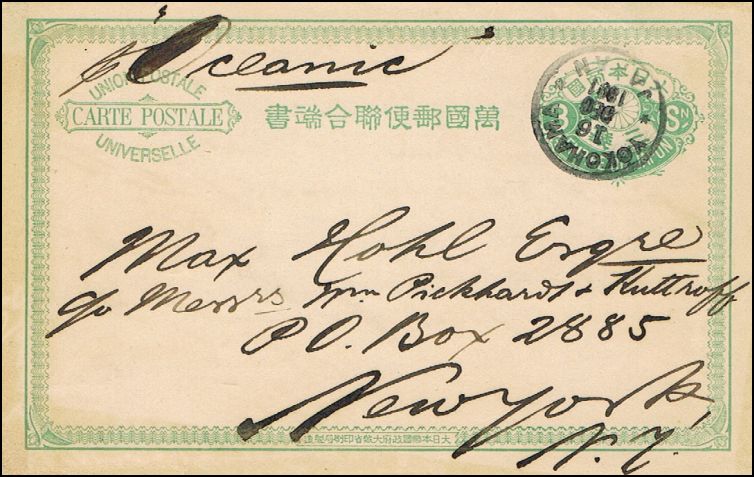 p "Oceanic"
UNION POSTALE
CARTE POSTALE
UNIVERSELLE
書端合聯便郵國萬
YOKOHAMA
16
DEC
1891
Max Hohl Esqre
c/o Messrs Wm Pickhardt & Kuttroff
P.O. Box 2885
New York,
N.Y.
造製局刷印省藏大府政國帝本日大